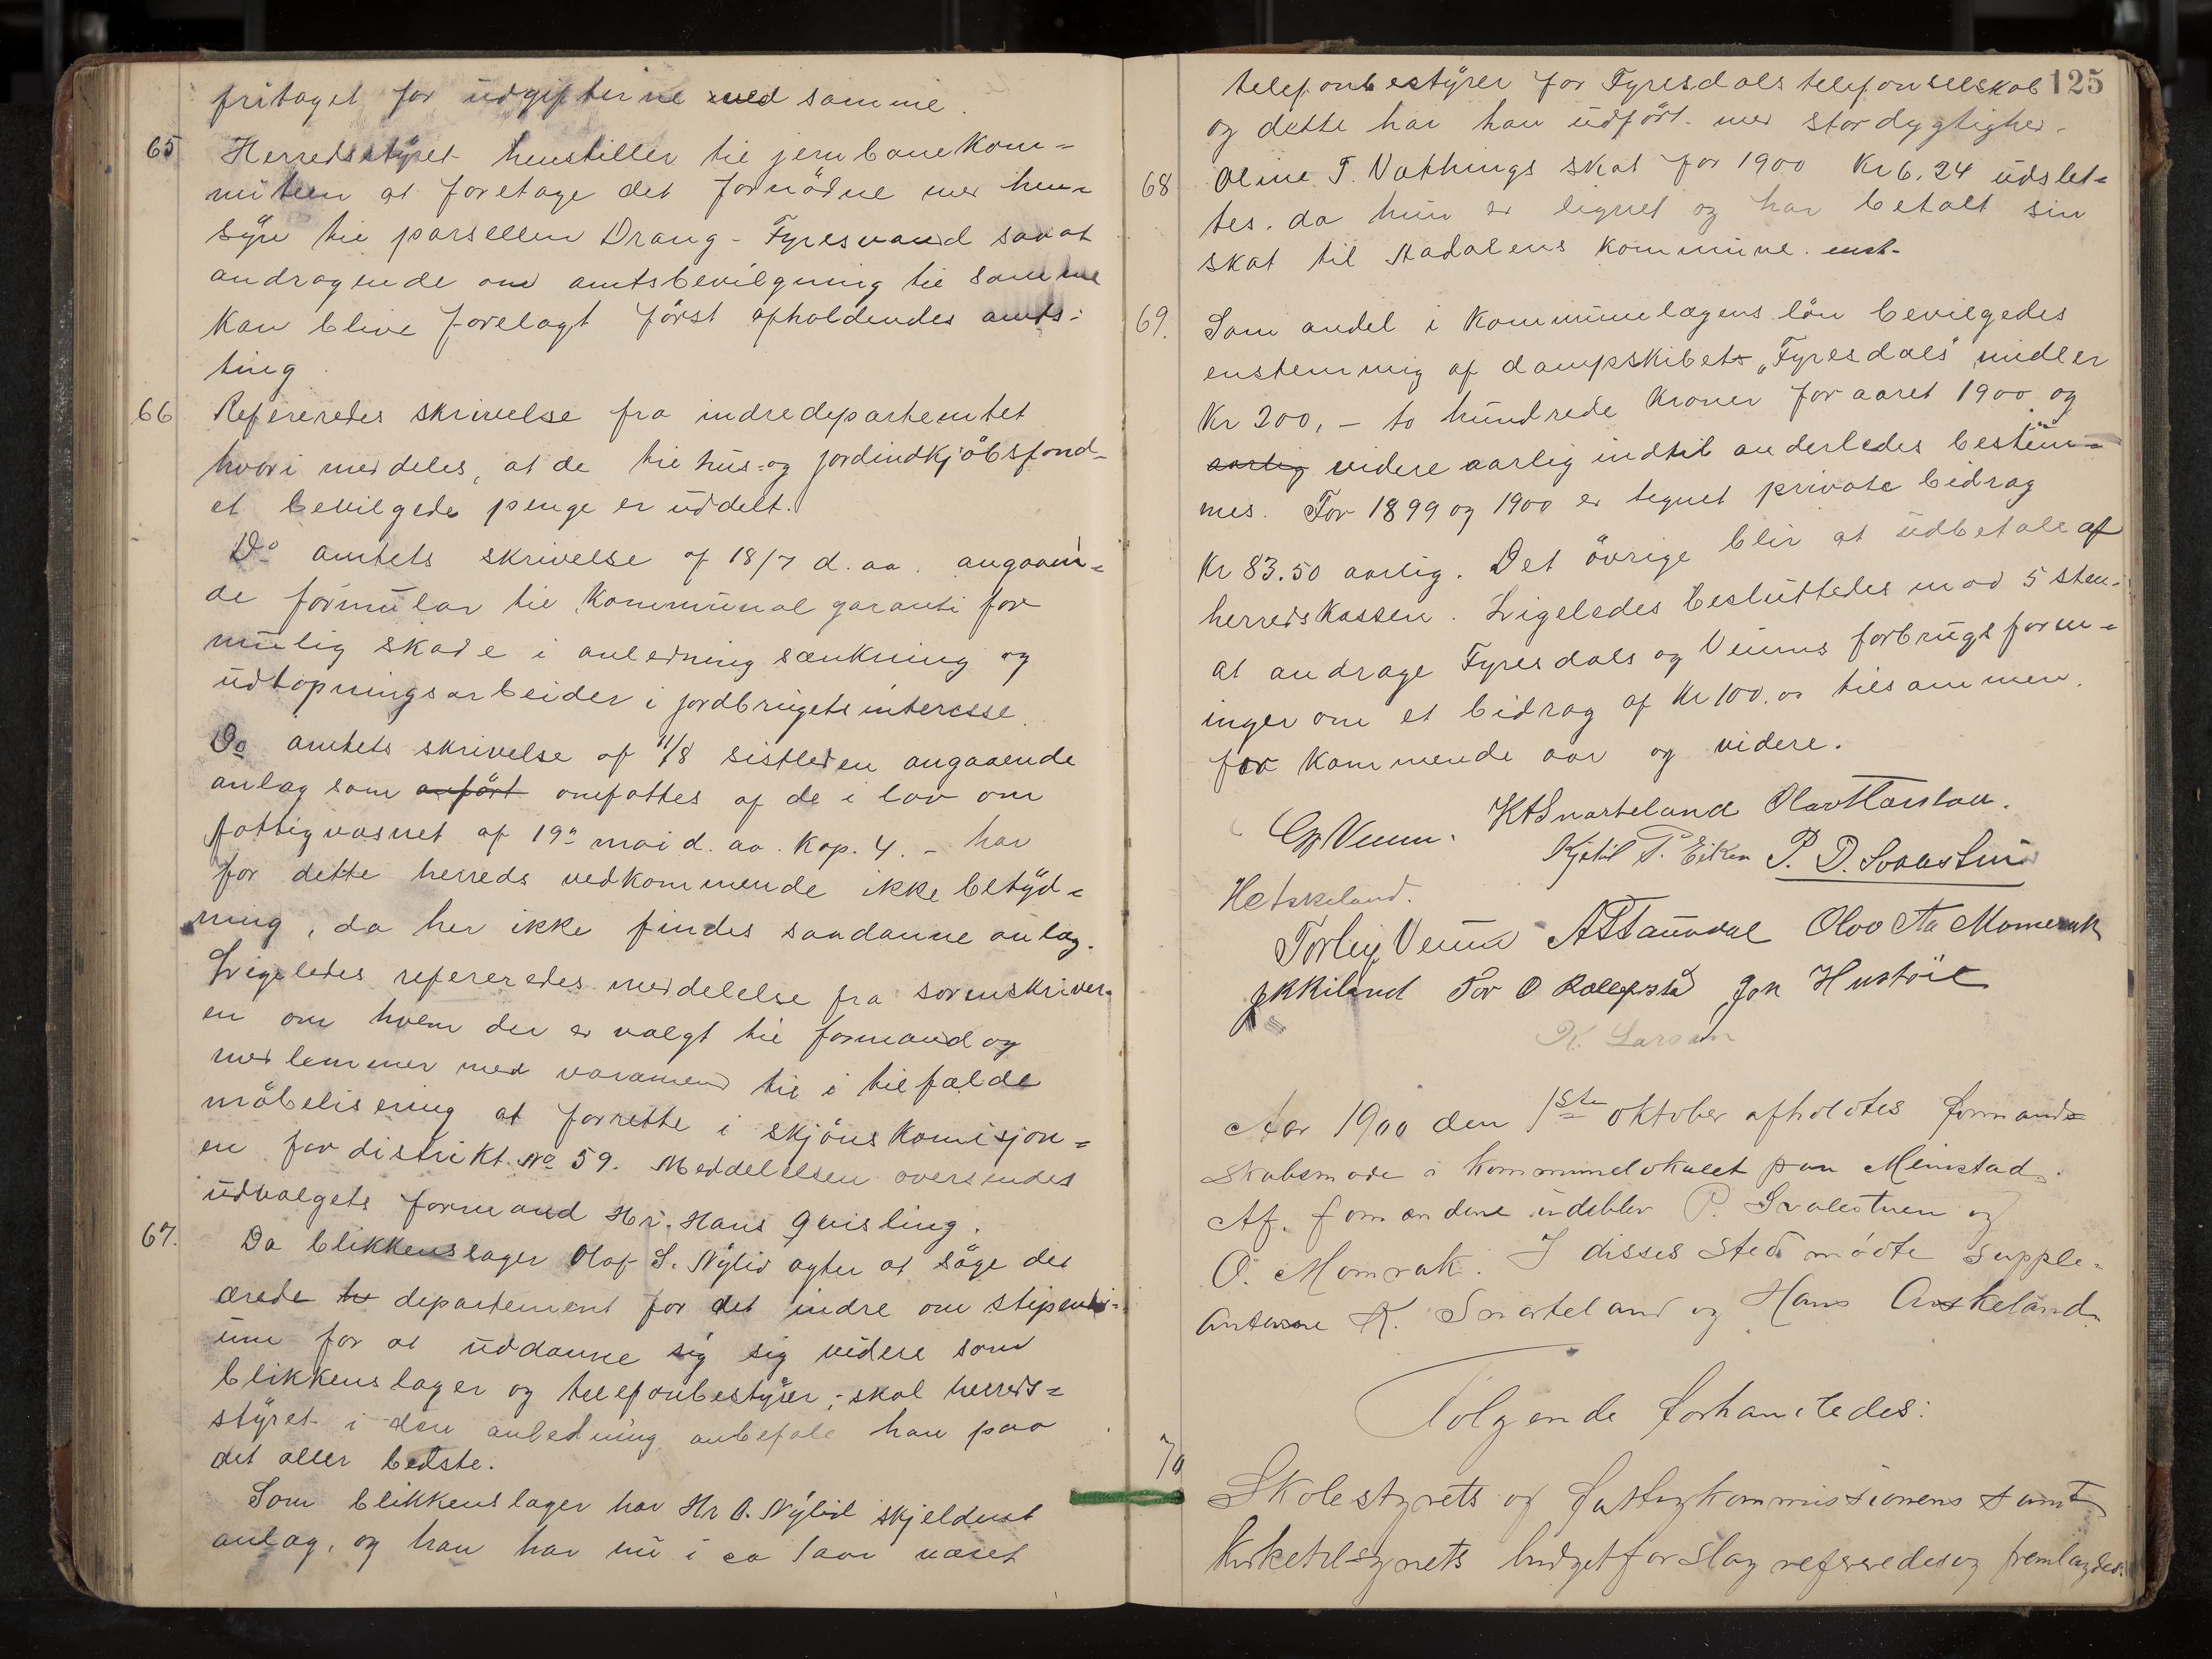 fritaget for udgifterne ved samme.
65 Herredsstyret henstiller til jernbanekom-
miteen at foretage det fornödne med hen-
syn til parsellen Drang-Fyresvand saa at
andragende om amtsbevilgning til samme
kan blive forelagt först afholdendes amts-
ting.
66 Refereredes skrivelse fra indredepartemtet
hvori meddeles, at de til hus- og jordindkjöbsfond-
et bevilgede penge er uddelt.
Do amtets skrivelse af 18/7 d. aa. angaaen-
de formular til kommunal garanti for
mulig skade i anledning sænkning og
udtapningsarbeider i jordbrugets interesse.
Do amtets skrivelse af 11/8 sistleden angaaende
anlæg som anfört omfattes af de i lov om
fattigvæsnet af 19de mai d. aa. Kap. 4. - har
for dette herreds vedkommende ikke betyd-
ning, da her ikke findes saadanne anlæg.
Ligeledes refereredes meddelelse fra sorenskriver-
en om hvem der er valgt til formand og
medlemmer med varamend til i tilfælde
möbelisering at forrette i skjönskomisjon-
en for distrikt No 59. Meddelelsen oversendes
udvalgets formand Hr. Hans Qvisling.
67. Da blikkenslager Olaf S. Nylid agter at söge det
ærede departement for det indre om stipendi-
um for at uddanne sig sig videre som
blikkenslager og telefonbestyrer; skal herreds-
styret i den anledning anbefale han paa
det aller bedste.
Som blikkenslager har Hr O. Nylid skjeldent
anlæg, og han har nu i ca 1 aar været
125
telefonbestyrer for Fyresdals telefonselskab
og dette har han udfört med stor dygtighed.
68 Oline T. Vathnings skat for 1900 Kr 6.24 udslet-
tes, da hun er lignet og har betalt sin
skat til Aadalens kommune. enst.
69. Som andel i Kommunelægens lön bevilgedes
enstemmig af dampskibets "Fyresdals" midler
Kr 200,- to hundrede Kroner for aaret 1900 og
aarlig videre aarlig indtil anderledes bestem-
mes. For 1899 og 1900 er tegnet private bidrag
Kr 83.50 aarlig. Det övrige blir at udbetale af
herredskassen. Ligeledes besluttedes mod 5 stem.
at andrage Fyresdals og Veums forbrugsforen-
inger om et bidrag af Kr 100.00 tilsammen
for kommende aar og videre.
G Veum. K A Snarteland Olav
Kjetil T. Eiken P. D. Svalestuen
H Askeland.
Torleiv Veum A S Taundal Olav Aa Momrak
Tor O Jon Hustöil
K. Larsen
Aar 1900 den 1ste oktober afholdtes formand-
skabsmøde i kommunelokalet paa Meinstad.
Af formændene udeblev P. Svalestuen og
O. Momrak. I disses sted mødte supple-
anterne K. Snarteland og Hans Askeland.
Følgende forhandledes:
70 Skolestyrets og fattigkommissionens samt
Kirketilsynets budgetforslag refereredes og fremlagdes.